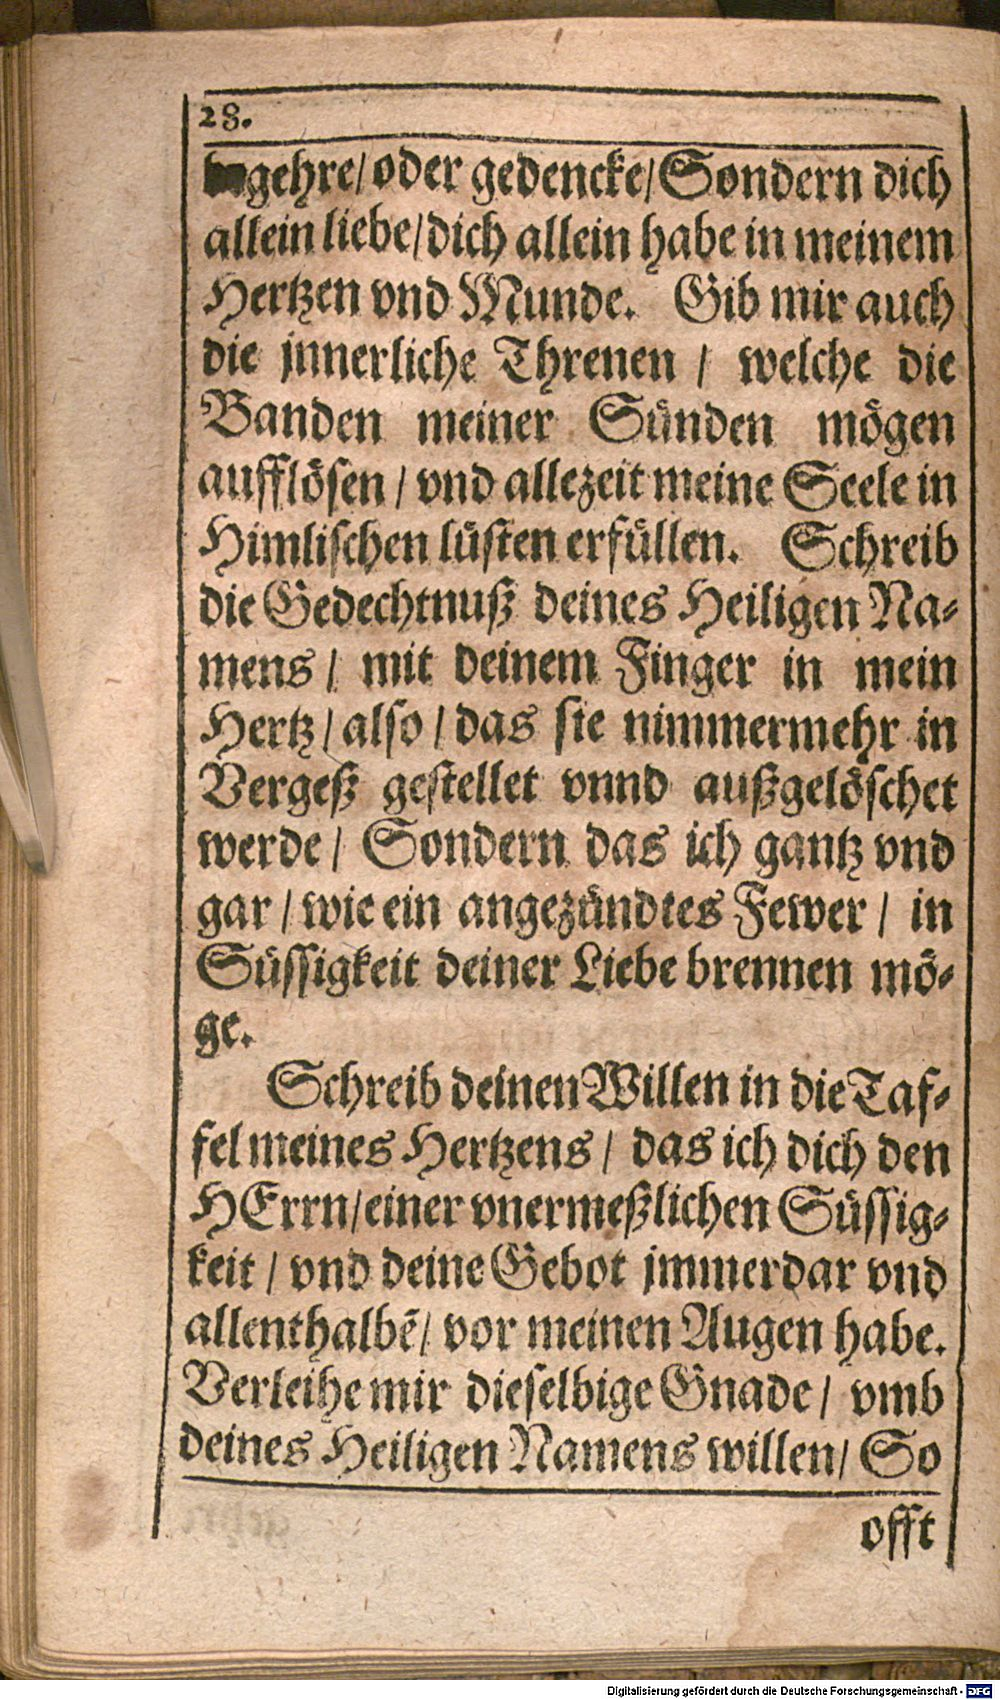 28.
begehre/ oder gedencke/ Sondern dich
allein liebe/ dich allein habe in meinem
Hertzen vnd Munde. Gib mir auch
die jnnerliche Threnen / welche die
Banden meiner Sünden mögen
aufflösen / vnd allezeit meine Seele in
Himlischen lüsten erfüllen. Schreib
die Gedechtnuß deines Heiligen Na-
mens / mit deinem Finger in mein
Hertz / also / das sie nimmermehr in
Vergeß gestellet vnnd außgelöschet
werde / Sondern das ich gantz vnd
gar / wie ein angezündtes Fewer / in
Süssigkeit deiner Liebe brennen mö-
ge.
Schreib deinen Willen in die Taf-
fel meines Hertzens / das ich dich den
HErrn/ einer vnermeßlichen Süssig-
keit / vnd deine Gebot jmmerdar vnd
allenthalbē/ vor meinen Augen habe.
Verleihe mir dieselbige Gnade / vmb
deines Heiligen Namens willen/ So
offt
Digitalisierung gefördert durch die Deutsche Forschungsgemeinschaft - DFG